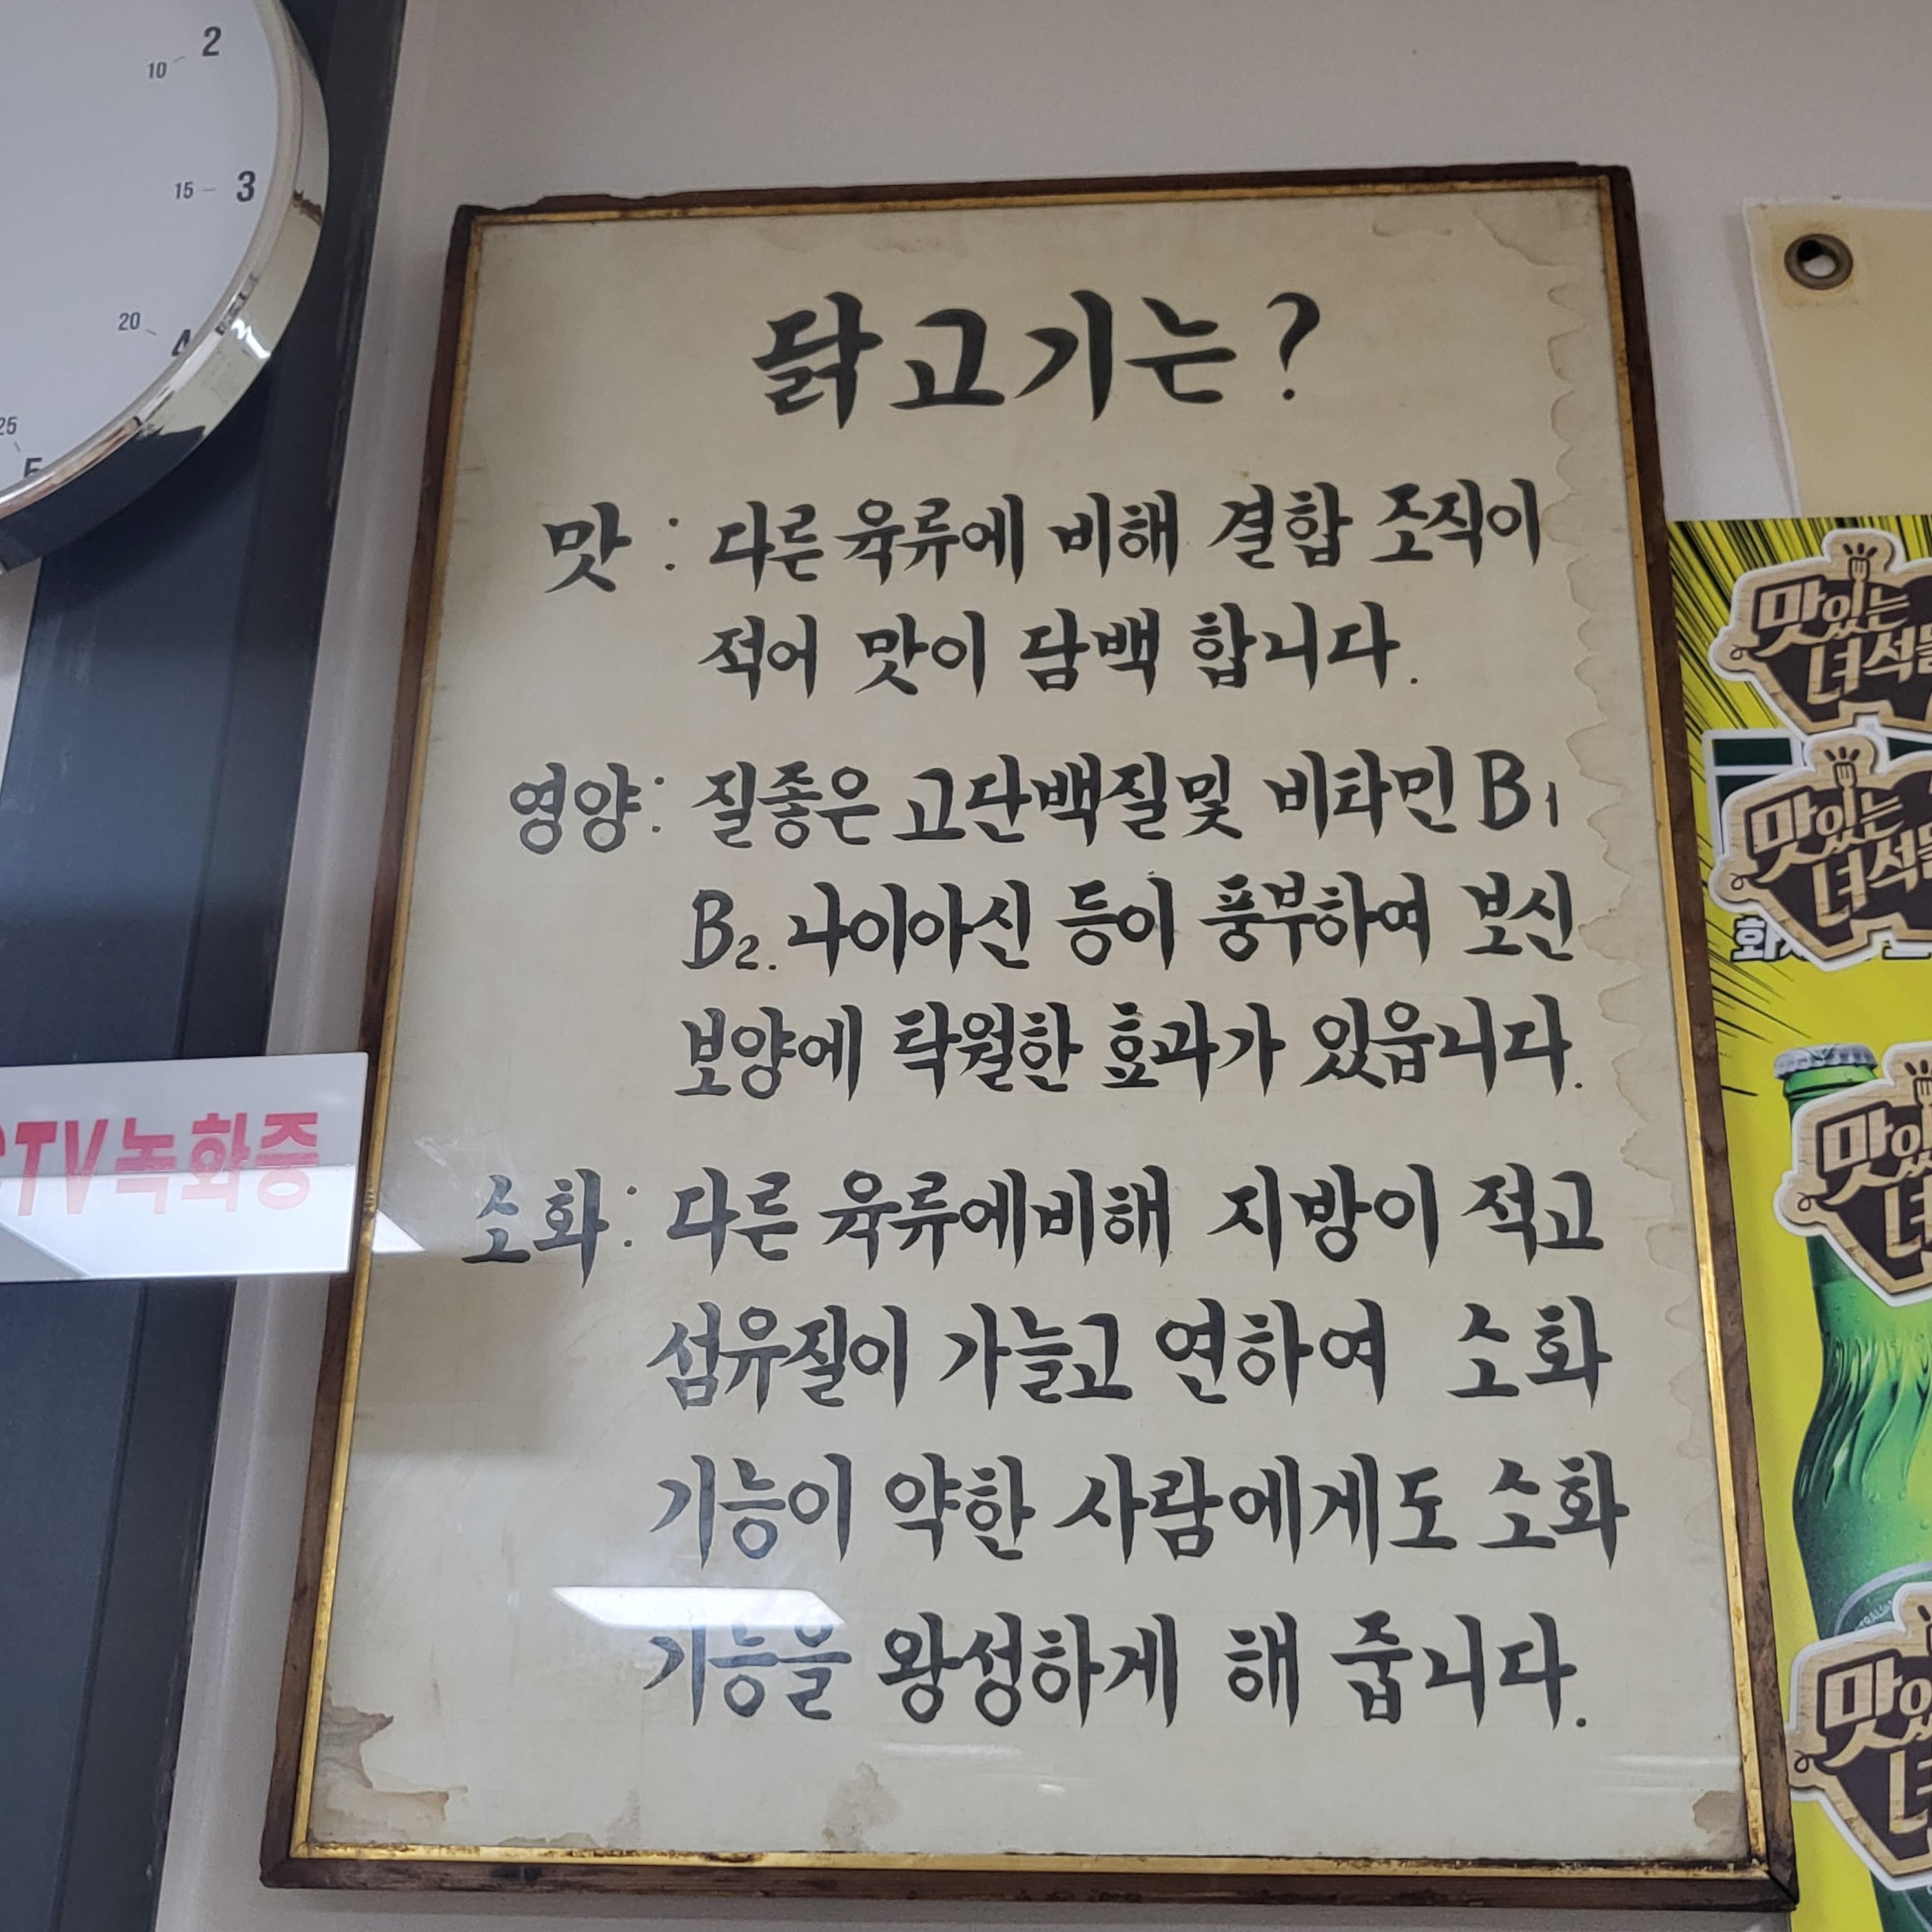 2
10
15
3
20
4
25
5
닭고기는?
맛 : 다른 육류에 비해 결합 조직이
적어 맛이 담백 합니다.
영양: 질좋은 고단백질및 비타민 B1
B2. 나이아신 등이 풍부하여 보신
보양에 탁월한 효과가 있읍니다.
소화: 다른 육류에비해 지방이 적고
섬유질이 가늘고 연하여 소화
기능이 약한 사람에게도 소화
기능을 왕성하게 해 줍니다.
TV녹화중
맛있는
녀석들
맛있는
녀석들